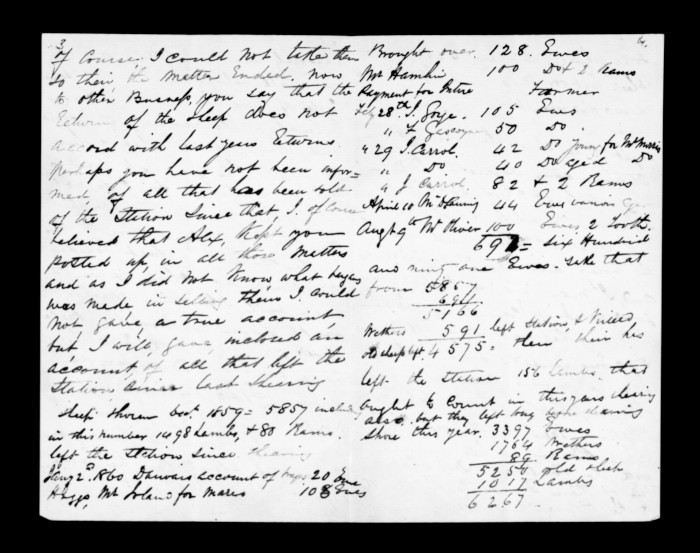 3
of Course, I could not take them
so then the Matter Ended. now
to other Business, you say that the
Return of the sheep does not
accord with last years Returns
Perhaps you have not been infor=
med, of all that has been sold
of the Station Since that, I. of Course
believed that Alex, Kept you
posted up, in all those Matters
and as I did not Know what
was made in selling them I. Could
not gave, a true account,
but I will, gave, inclosed an
account of all that left the
Station since last shearing
sheep shorn Decr. 1859 = 5857
in this number 1498 Lambs, & 80 Rams.
left the station since shearing
Jany 2d. 1860 account of 20 Ewe
Mr Ireland for Mares 108 Ewes
Brought over. 128. Ewes
Mr Hamlin 100 Do & 2 Rams
Payment for Entire Farmer
Feby 28th J. Goye. 105 Ewes
" F 50 Do
" 29 J. Carrol. 42 Do young for Mr Morris
" Do 40 Do aged Do
" J Carrol. 82 & 2 Rams
April 10 44 Ewes
Augt 9th Mr Oliver 100 Ewes, 2 Tooth.
691 = Six Hundred
and ninty one Ewes. take that
from 5857
691
5166
Wethers 591 left Station, & Killed
old sheep left 4575 = then their has
left the station 156 lambs. that
ought to Count in this years shearing
also. but they left before shearing
Shore this year. 3397 Ewes
1764 Wethers
89 Rams
5250 old sheep
1017 Lambs
6267